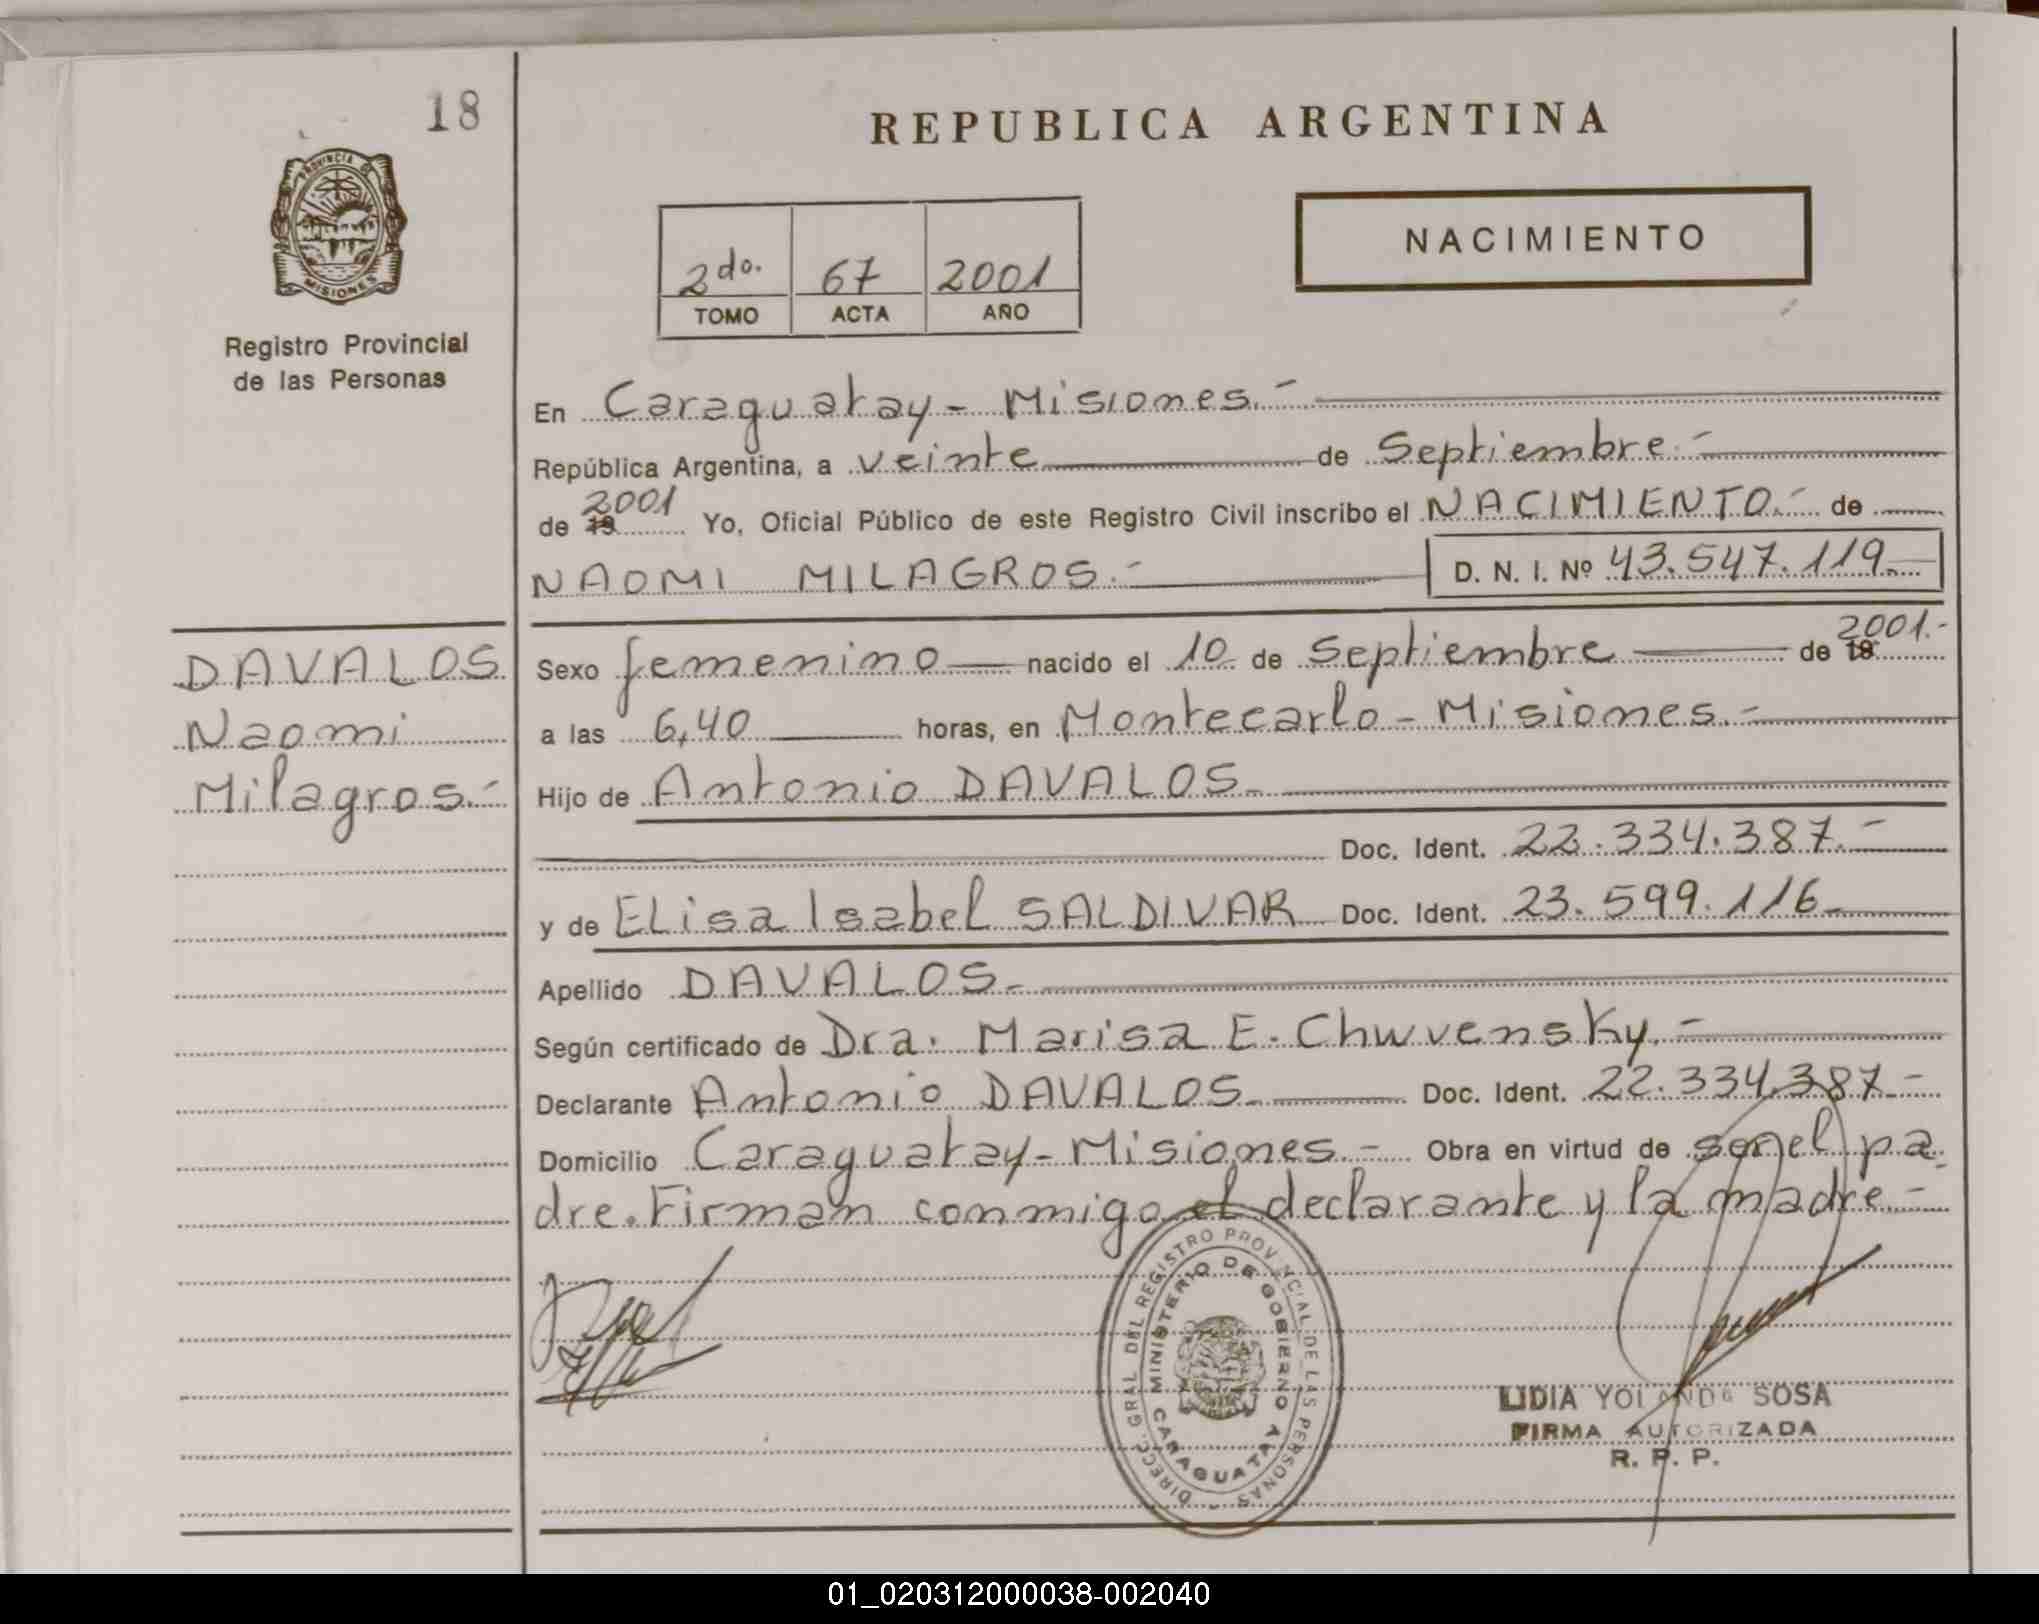 18
PROVINCIA DE
MISIONES
Registro Provincial
de las Personas
REPUBLICA ARGENTINA
NACIMIENTO
2do. 67 2001
TOMO ACTA AÑO
En Caraguatay - Misiones.-
República Argentina, a veinte de Septiembre.-
2001
de 19 Yo, Oficial Público de este Registro Civil inscribo el NACIMIENTO.- de
NAOMI MILAGROS.- D. N. I. Nº 43.547.119.-
DAVALOS
Naomi
Milagros.-
2001.-
Sexo femenino nacido el 10 de Septiembre de 19
a las 6,40 horas, en Montecarlo - Misiones.-
Hijo de Antonio DAVALOS.-
Doc. Ident. 22.334.387.-
y de ELisa Isabel SALDIVAR Doc. Ident. 23.599.116.-
Apellido DAVALOS.-
Según certificado de Dra. Marisa E. Chwvensky.-
Declarante Antonio DAVALOS.- Doc. Ident. 22.334.387-
Domicilio Caraguatay-Misiones.- Obra en virtud de ser el pa
dre. Firman conmigo el declarante y la madre.-
DIRECC. GRAL. DEL REGISTRO PROVINCIAL DE LAS PERSONAS -
MINISTERIO DE GOBIERNO
CARAGUATAY
LIDIA YOLANDA SOSA
FIRMA AUTORIZADA
R. P. P.
01_020312000038-002040